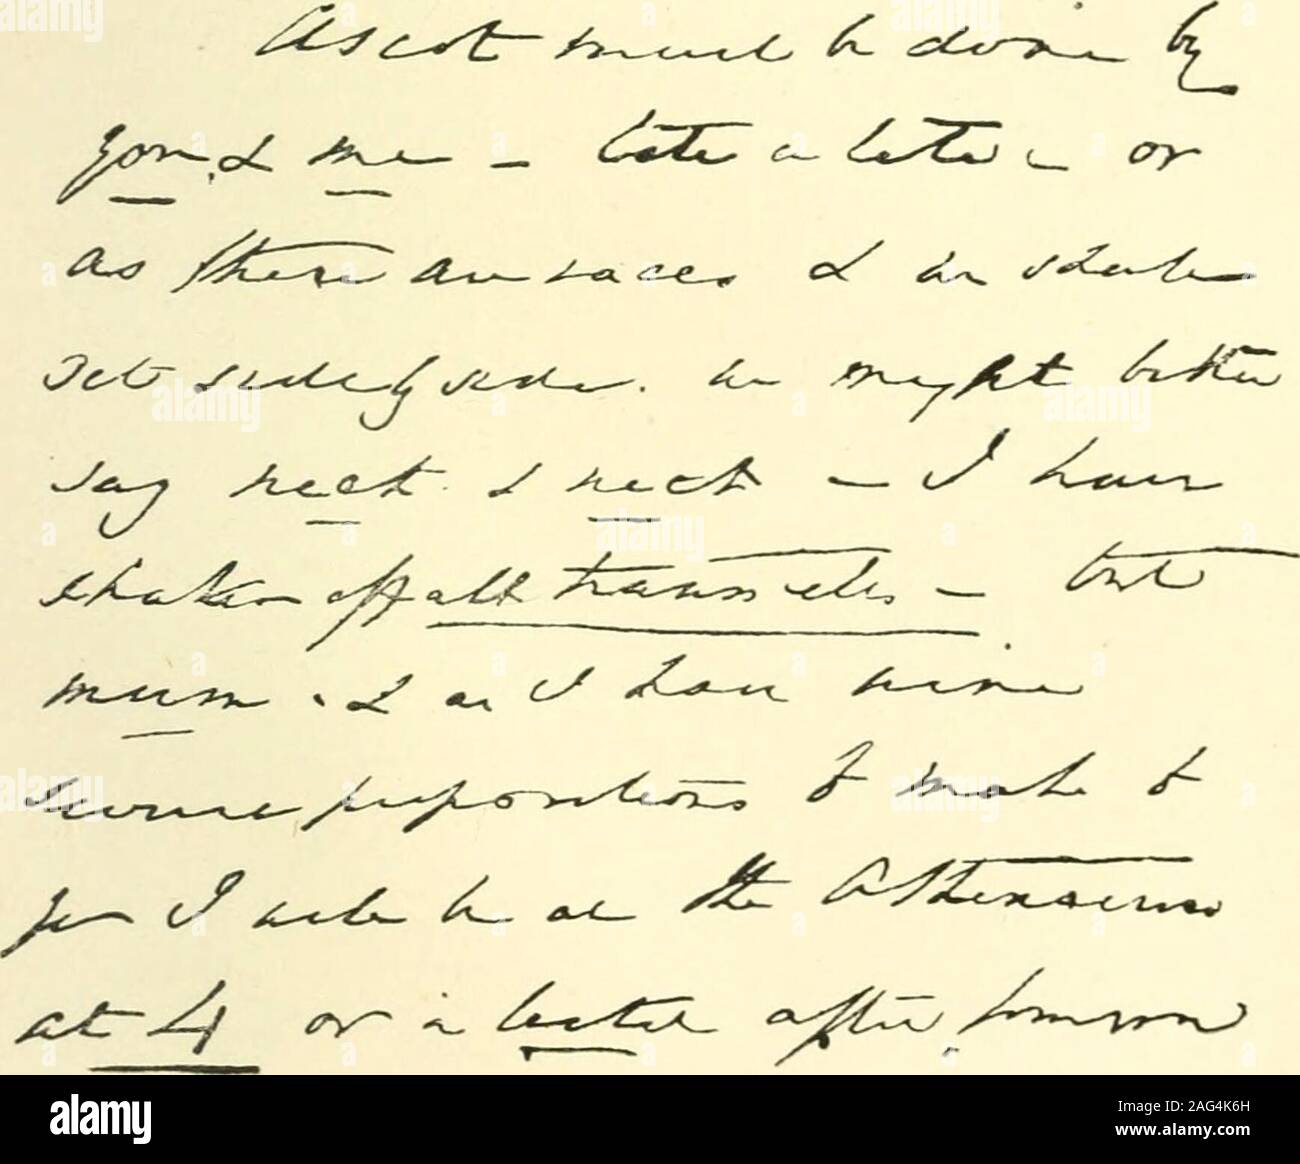 Ascot must be done by
you & me - tete a tete - or
as there are races & we shall
act side by side. we might better
say neck & neck - I have
shaken off all trammels - but
mum. & as I have nine
several propositions to make to
you I will be at the Athenaeum
at 4 or a little after tomorrow
alamy
Image ID: 2AG4K6H
www.alamy.com